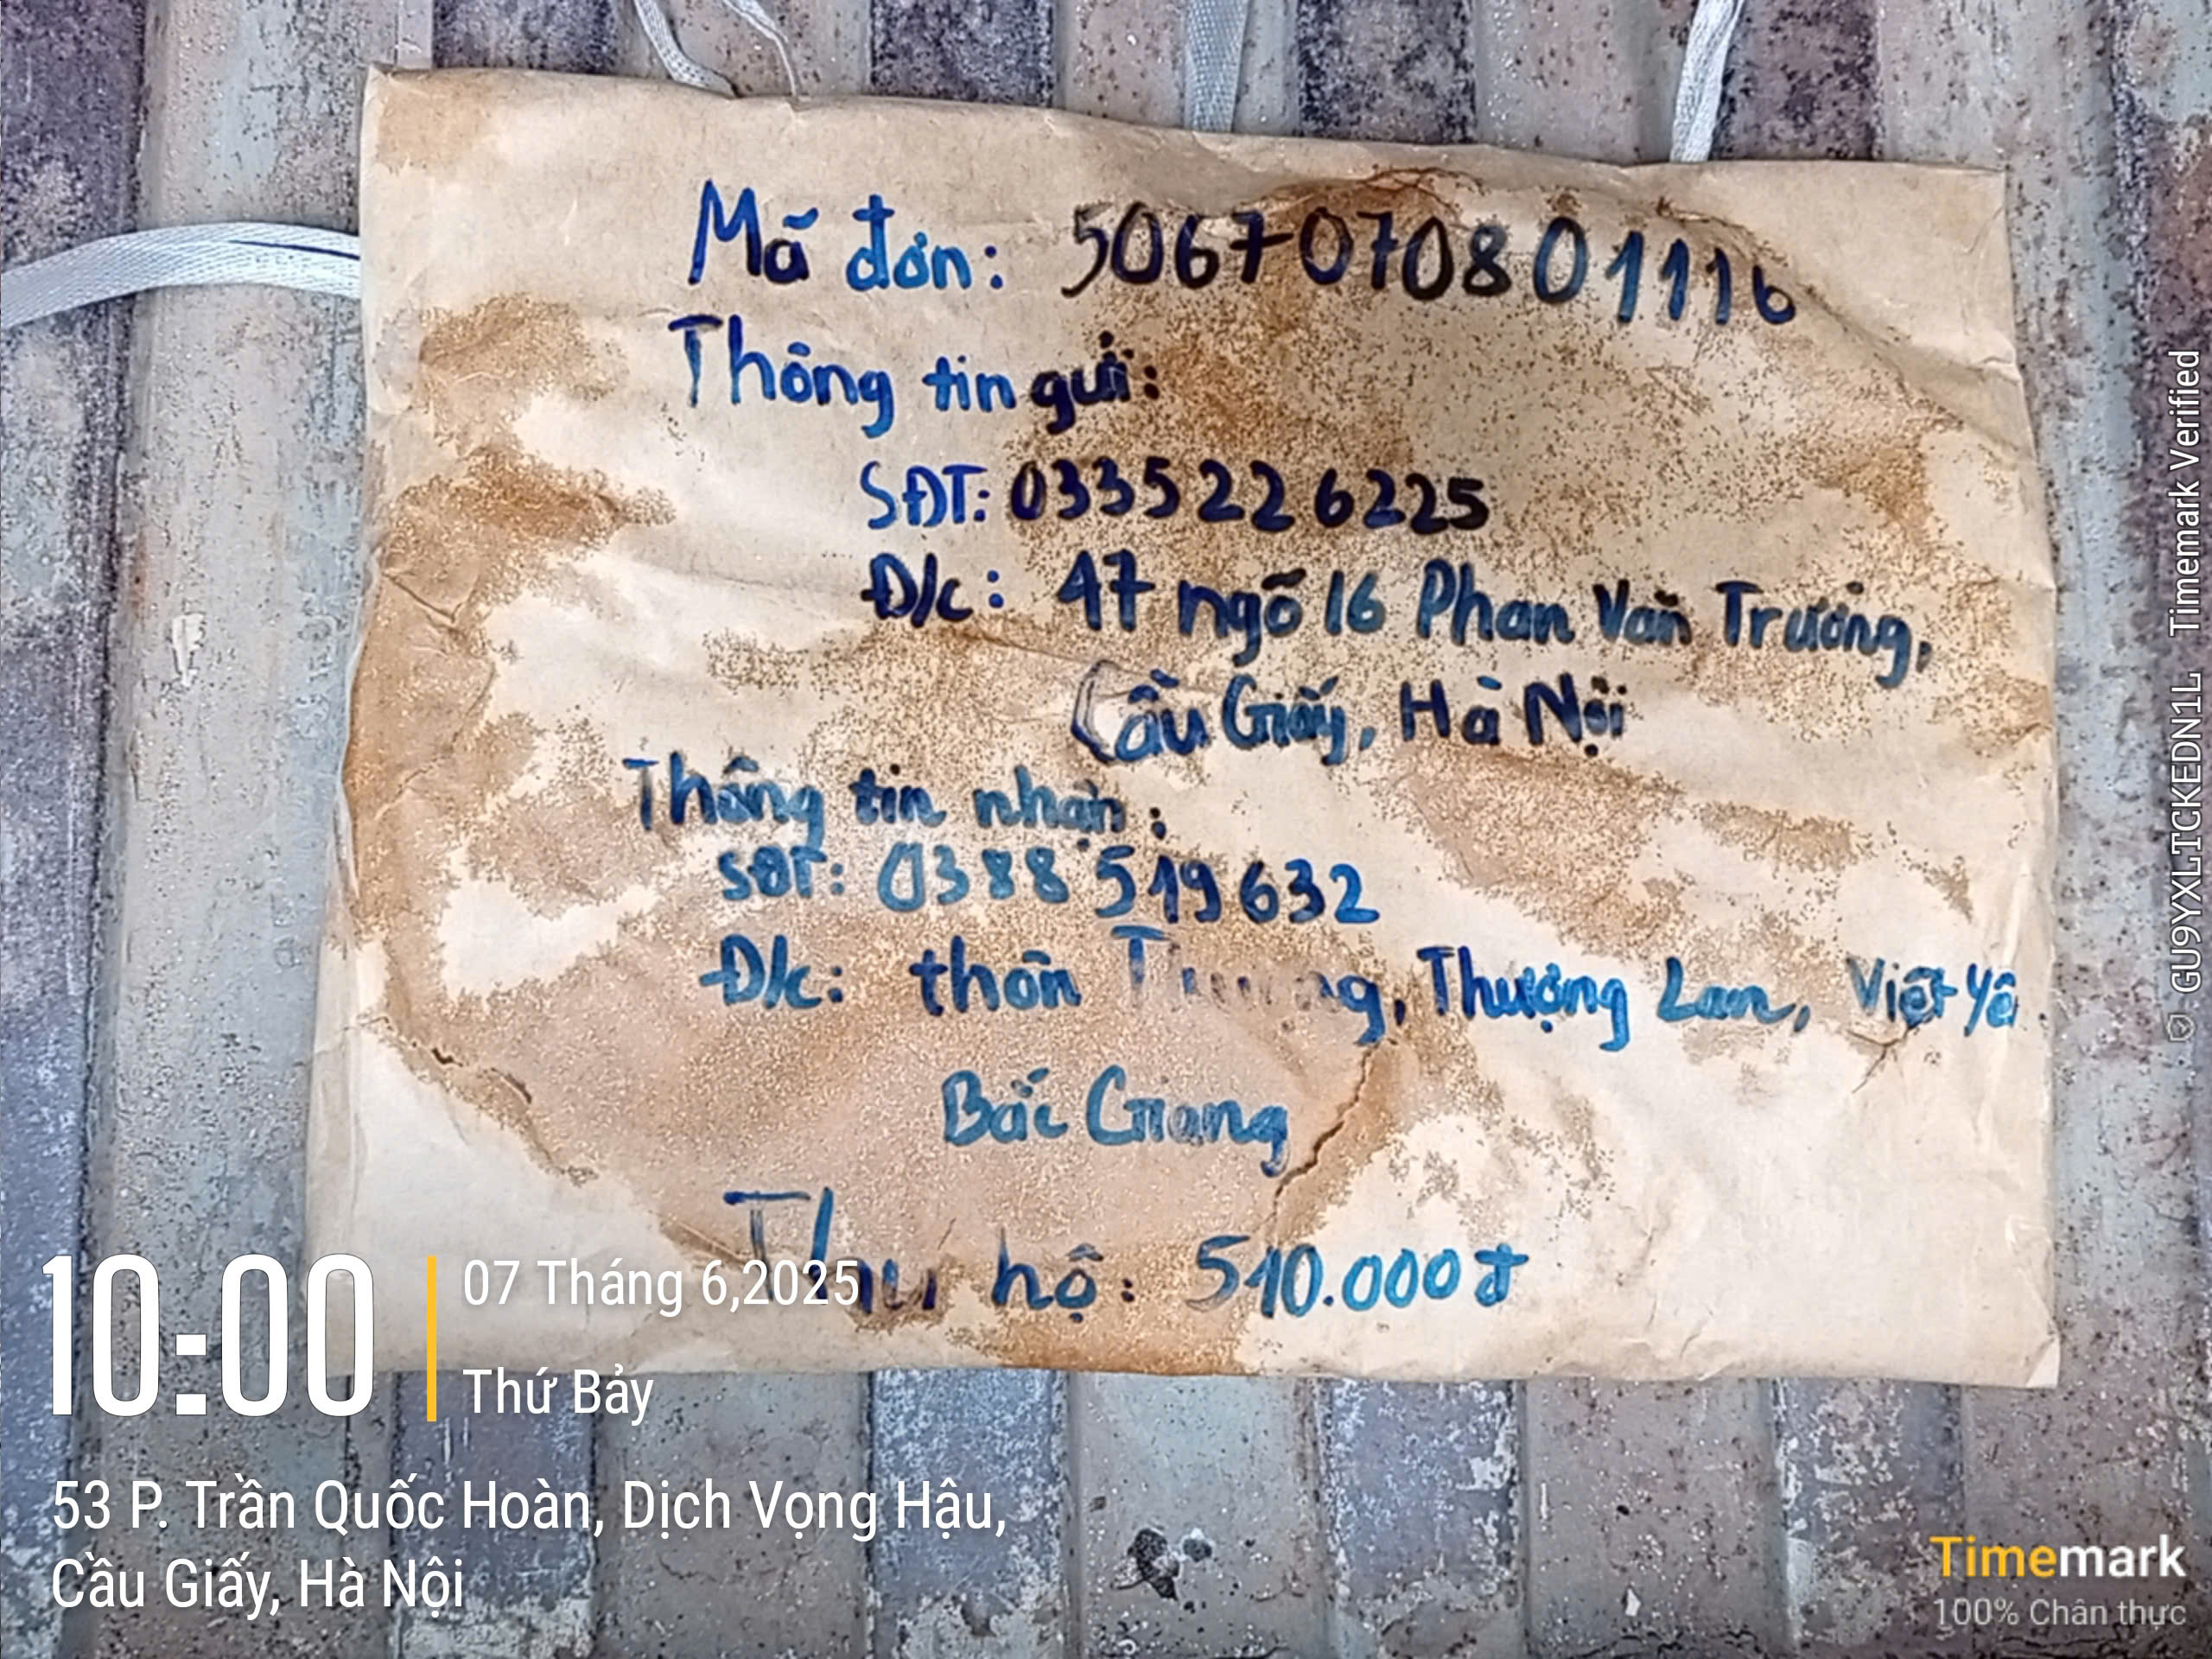 Mã đơn: 5067070801116
Thông tin gửi:
SĐT: 0335226225
Đ/c: 47 ngõ 16 Phan Văn Trường,
Cầu Giấy, Hà Nội
Thông tin nhận:
SĐT: 0388519632
Đ/c: thôn Thượng Lan, Việt Yê
Bắc Giang
Thu hộ: 510.000đ
10:00
07 Tháng 6,2025
Thứ Bảy
53 P. Trần Quốc Hoàn, Dịch Vọng Hậu,
Cầu Giấy, Hà Nội
GU9YXLTCKEDN1L Timemark Verified
Timemark
100% Chân thực